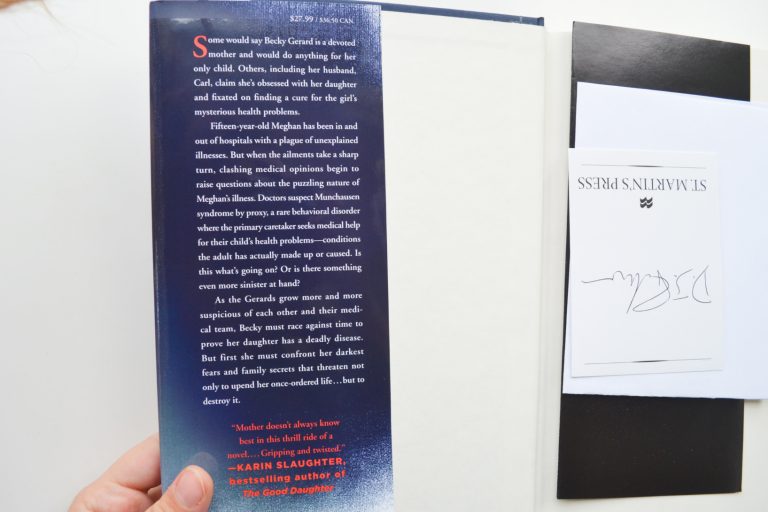 $27.99 / $36.50 CAN
Some would say Becky Gerard is a devoted
mother and would do anything for her
only child. Others, including her husband,
Carl, claim she's obsessed with her daughter
and fixated on finding a cure for the girl's
mysterious health problems.
Fifteen-year-old Meghan has been in and
out of hospitals with a plague of unexplained
illnesses. But when the ailments take a sharp
turn, clashing medical opinions begin to
raise questions about the puzzling nature of
Meghan's illness. Doctors suspect Munchausen
syndrome by proxy, a rare behavioral disorder
where the primary caretaker seeks medical help
for their child's health problems—conditions
the adult has actually made up or caused. Is
this what's going on? Or is there something
even more sinister at hand?
As the Gerards grow more and more
suspicious of each other and their medi-
cal team, Becky must race against time to
prove her daughter has a deadly disease.
But first she must confront her darkest
fears and family secrets that threaten not
only to upend her once-ordered life…but to
destroy it.
"Mother doesn't always know
best in this thrill ride of a
novel.… Gripping and twisted."
—KARIN SLAUGHTER,
bestselling author of
The Good Daughter
ST. MARTIN'S PRESS